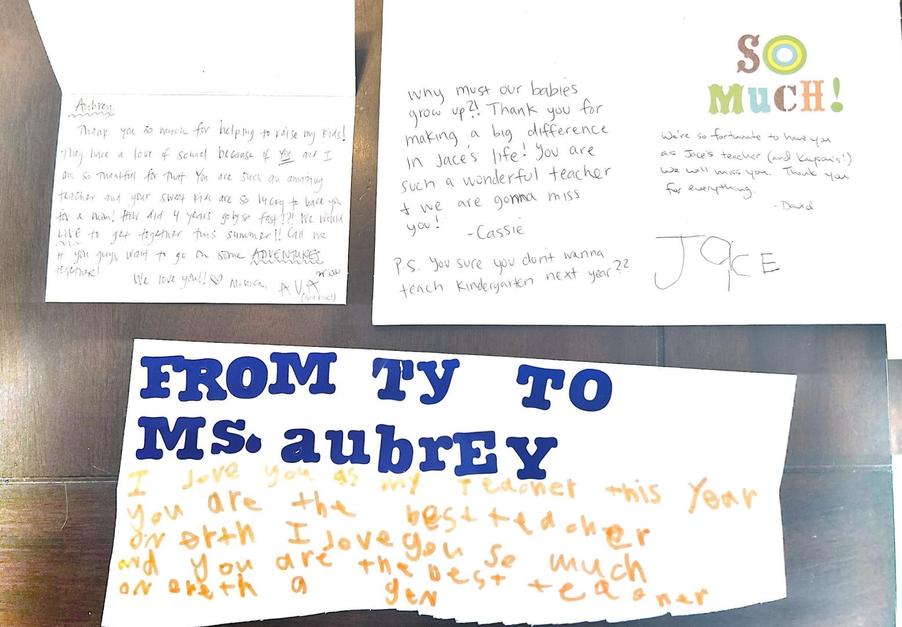 Aubrey,
Thank you so much for helping to raise my kids!
They have a love of school because of you and I
am so thankful for that. You are such an amazing
teacher and your sweet kids are so lucky to have you
for a mom! How did 4 years go by so fast?!? We would
LOVE to get together this summer!! Call me
if you guys want to go on some ADVENTURES
together!
We love you!! ♡ Monica,
AVA
why must our babies
grow up?! Thank you for
making a big difference
in Jace's life! You are
such a wonderful teacher
& we are gonna miss
you!
-Cassie
P.S. You sure you dont wanna
teach Kindergarten next year??
SO
MUCH!
We're so fortunate to have you
as Jace's teacher (and Kayson's!)
We will miss you. Thank you
for everything.
-David
JaCE
FROM Ty TO
Ms. aubrEY
I love you as my teacher this Year
You are the best teacher
on erth I love you so much
and you are the best teacher
on ereth a gen